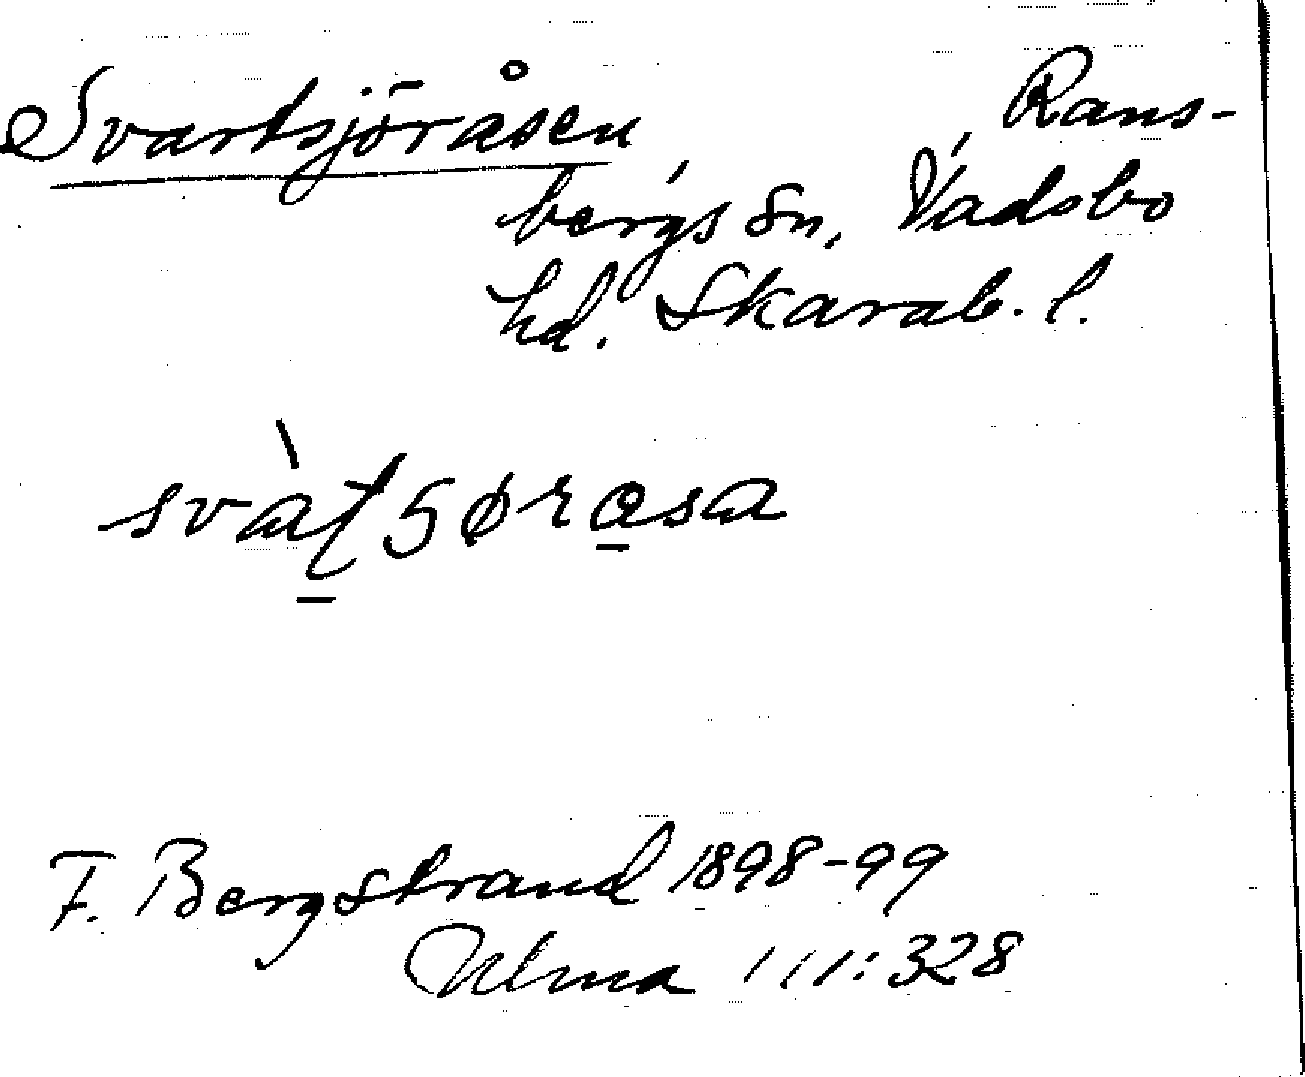 Svartsjöråsen, Rans-
bergs sn, Vadsbo
hd. Skarab. l.
svàʈʂørås̱a
F. Bergstrand 1898-99
Ulma 111:328